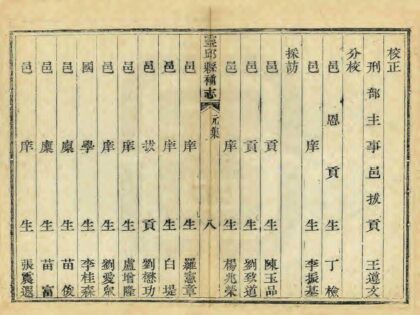 校正
刑部主事邑拔貢 王遵文
分校
邑恩貢生 丁檢
邑庠生 李振基
採訪
邑貢生 陳玉品
邑貢生 劉致道
邑庠生 楊兆榮
靈邱縣補志 元集 八
邑庠生 羅憲章
邑庠生 白堤
邑拔貢 劉懋功
邑庠生 盧增隆
邑庠生 劉愛眾
國學生 李桂森
邑廩生 苗俊
邑廩生 苗富
邑庠生 張震遐